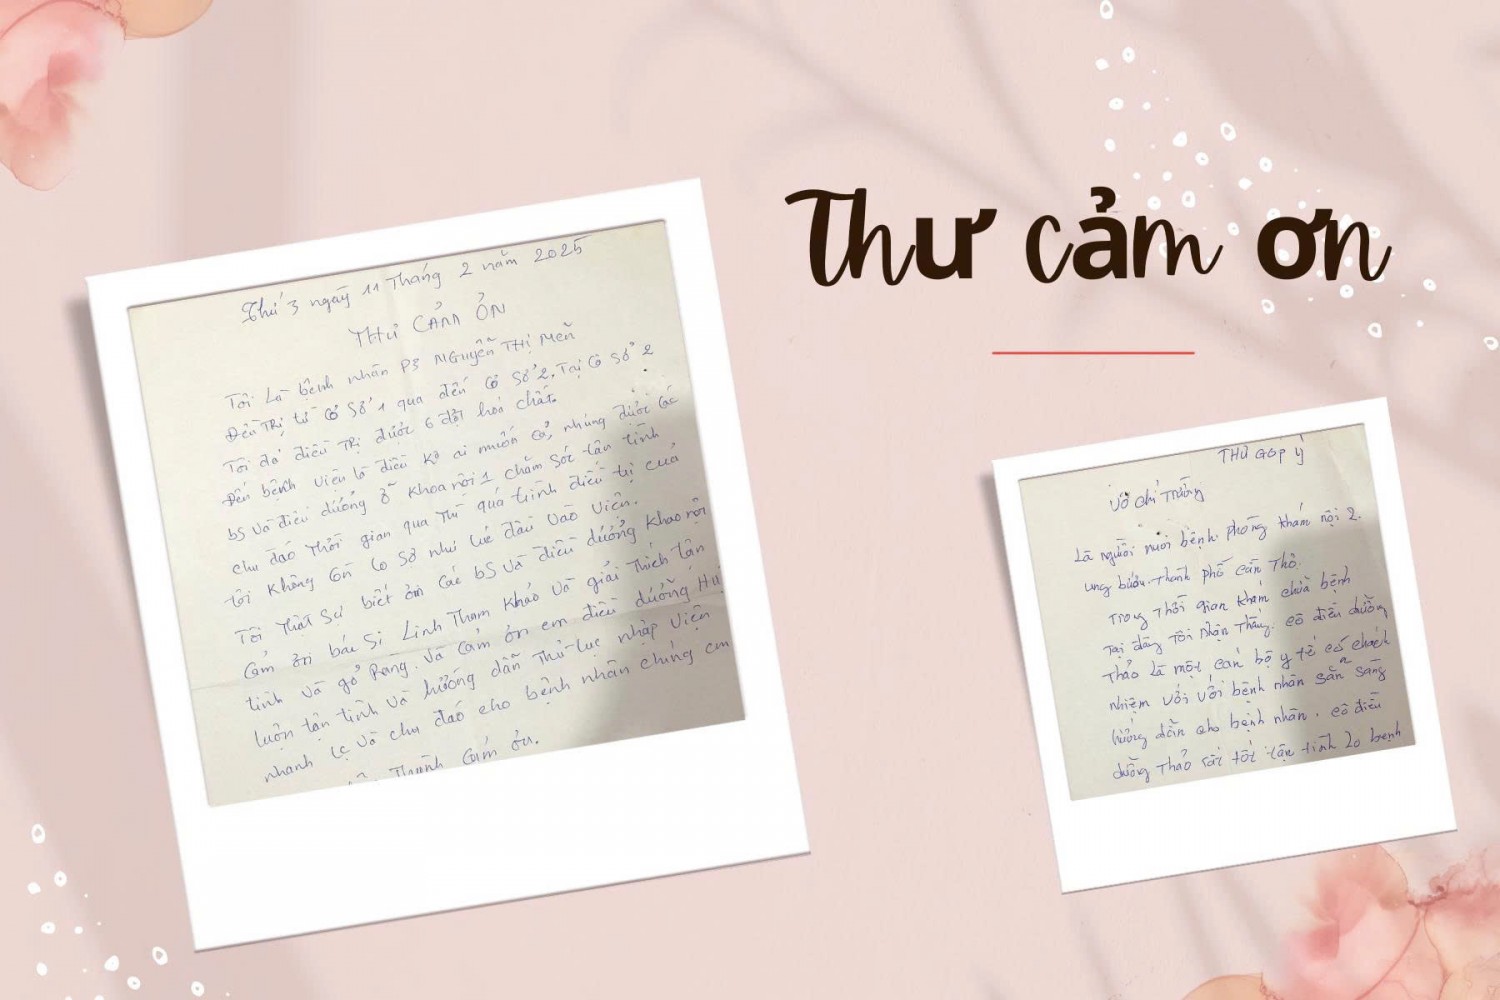 Thư cảm ơn
Thứ 3 ngày 11 Tháng 2 năm 2025
THƯ CẢM ƠN
Tôi Là bệnh nhân P3 NGuyễn THị Mến
Đến TRị từ Cơ Sở 1 qua đến Cơ Sở 2. Tại Cơ Sở 2
Tôi đã điều TRị được 6 đợt hoá chất.
Đến bệnh viện là điều Ko ai muốn cả, nhưng được các
bS và điều dưỡng ở Khoa nội 1 chăm sóc tận tình
chu đáo Thời gian qua Thì quá trình điều trị của
tôi không còn lo sợ như lúc đầu vào viện.
Tôi Thật Sự biết ơn các bS và điều dưỡng Khoa nội
Cảm ơn bác Sĩ Linh Thăm Khám và giải Thích tận
tình và gỏ Ràng. và cảm ơn em điều dưỡng
luôn tận tình và hướng dẫn Thủ-tục nhập viện
nhanh lẹ và chu đáo cho bệnh nhân chúng em
Thành Cảm ơn.
THƯ GÓP Ý
Võ chí Trường
Là người nuôi bệnh. phòng khám nội 2.
ung bướu. Thành phố Cần Thơ.
Trong Thời gian khám chữa bệnh
Tại đây Tôi Nhận Thấy. cô điều dưỡng
Thảo là một cán bộ y tế có trách
nhiệm với với bệnh nhân sẵn sàng
hướng dẫn cho bệnh nhân. cô điều
dưỡng Thảo rất tốt tận tình lo bệnh